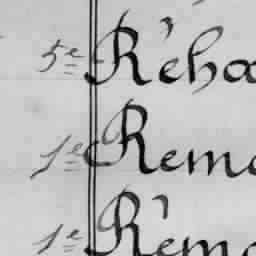 5e Réhoa
1e Rema
1e Réma